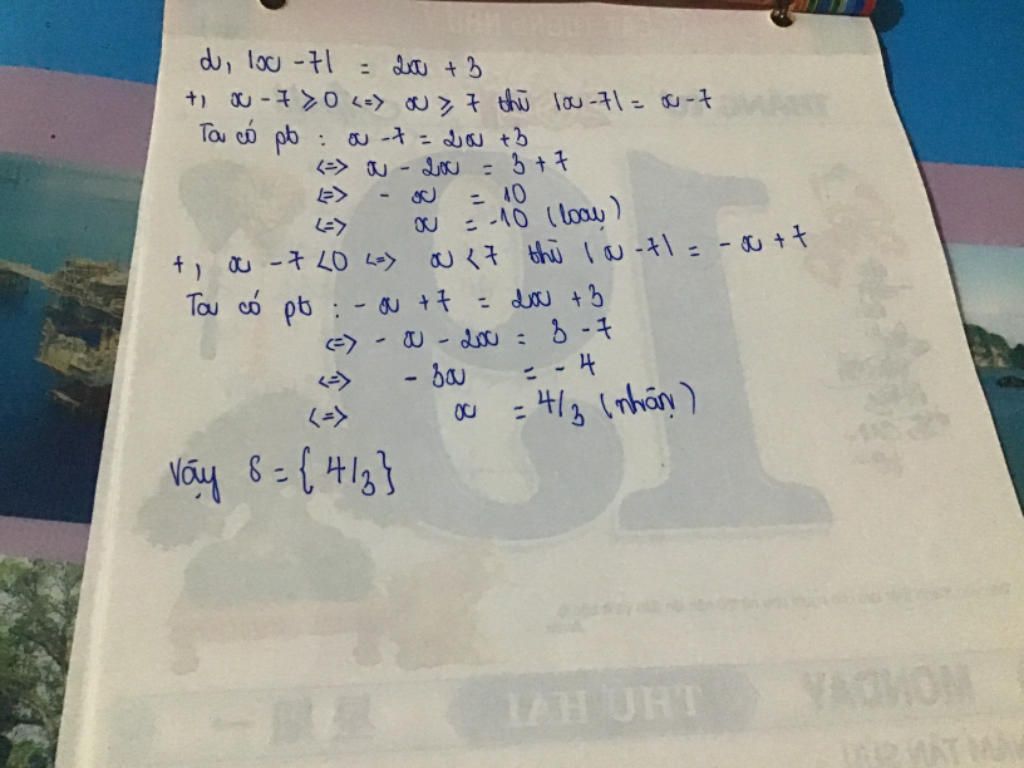 d, |x - 7| = 2x + 3
+, x - 7 ≥ 0 <=> x ≥ 7 thì |x - 7| = x - 7
Ta có pt : x - 7 = 2x + 3
<=> x - 2x = 3 + 7
<=> - x = 10
<=> x = -10 (loại)
+, x - 7 < 0 <=> x < 7 thì |x - 7| = - x + 7
Ta có pt : - x + 7 = 2x + 3
<=> - x - 2x = 3 - 7
<=> - 3x = - 4
<=> x = 4/3 (nhận)
Vậy S = { 4/3 }
THÁNG TƯ
19
MONDAY
THỨ HAI
NĂM TÂN SỬU